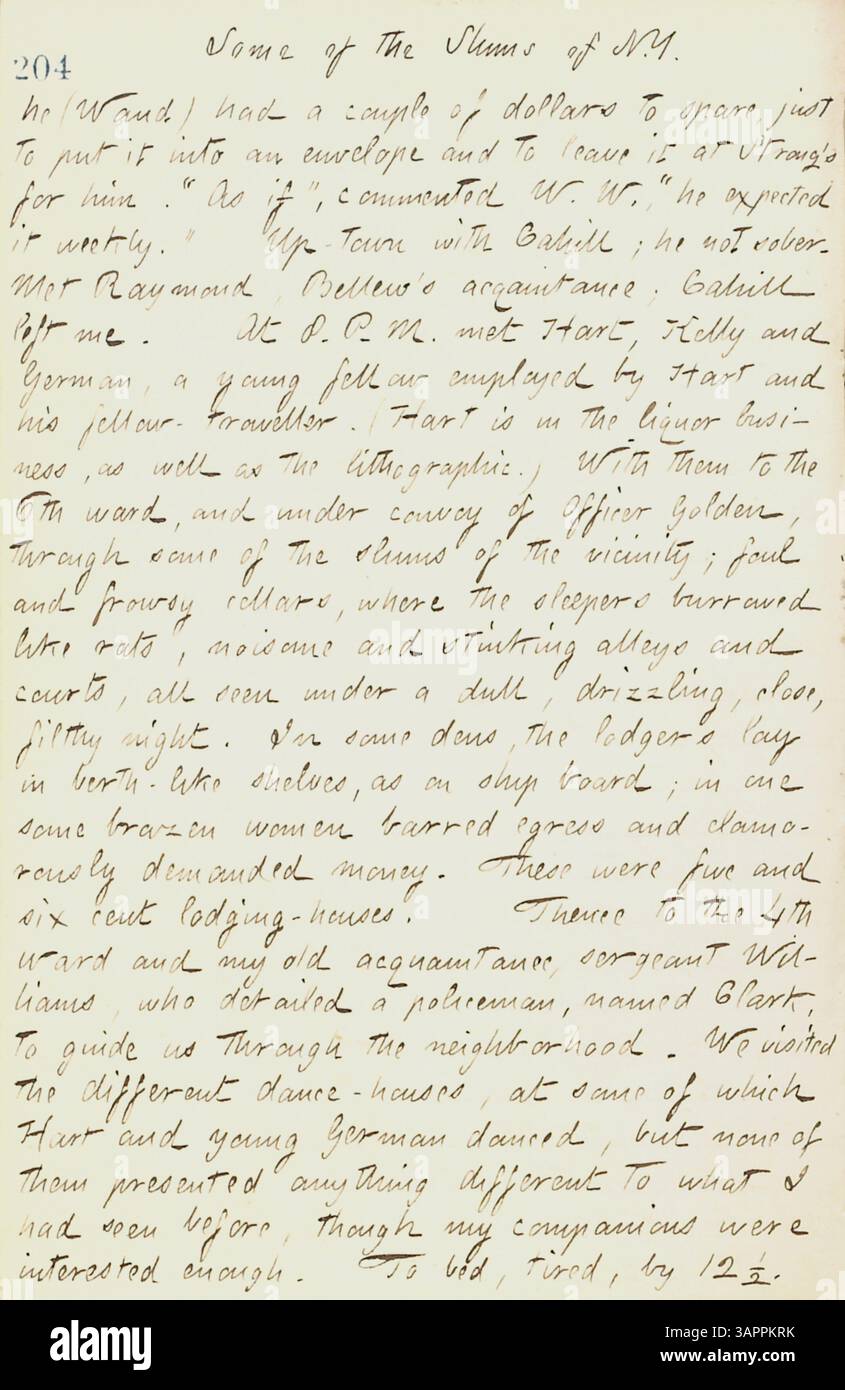 Some of the Slums of N.Y.
204
he (Waud) had a couple of dollars to spare, just
to put it into an envelope and to leave it at Strong's
for him. "As if", commented W. W., "he expected
it weekly." Up-town with Cahill; he not sober.
Met Raymond, Bellew's acquaintance; Cahill
left me. At 8. P. M. met Hart, Kelly and
German, a young fellow employed by Hart and
his fellow-traveller. (Hart is in the liquor busi-
ness, as well as the lithographic.) With them to the
6th ward, and under convoy of Officer Golden,
through some of the slums of the vicinity; foul
and frowsy cellars, where the sleepers burrowed
like rats, noisome and stinking alleys and
courts, all seen under a dull, drizzling, close,
filthy night. In some dens, the lodgers lay
in berth-like shelves, as on ship board; in one
some brazen women barred egress and clamo-
rously demanded money. These were five and
six cent lodging-houses. Thence to the 4th
ward and my old acquaintance, sergeant Wil-
liams, who detailed a policeman, named Clark,
to guide us through the neighborhood. We visited
the different dance-houses, at some of which
Hart and young German danced, but none of
them presented anything different to what I
had seen before, though my companions were
interested enough. To bed, tired, by 12 1/2.
alamy
Image ID: 3APPKRK
www.alamy.com